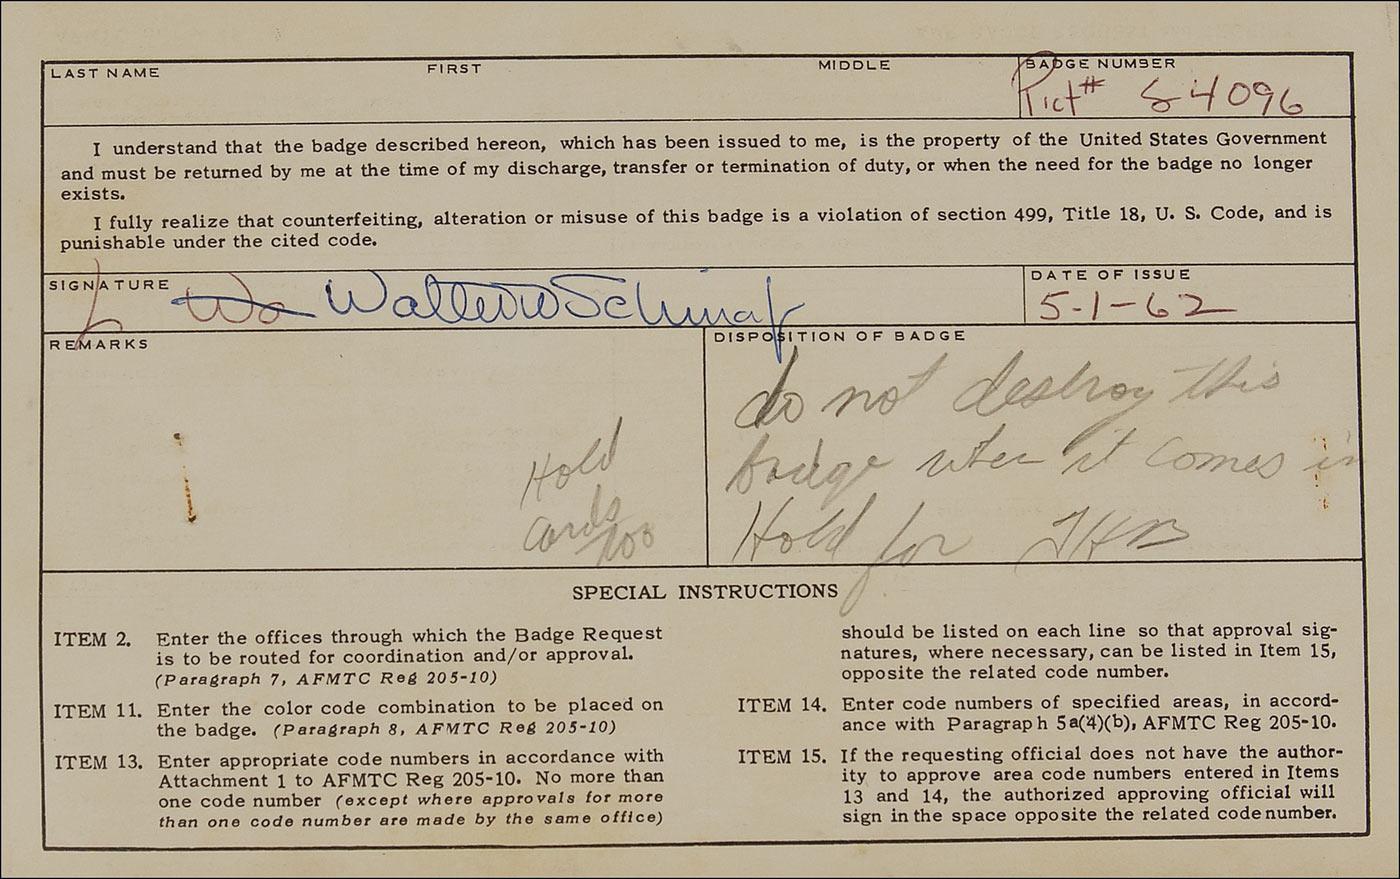 LAST NAME FIRST MIDDLE BADGE NUMBER
Pict# S4096
I understand that the badge described hereon, which has been issued to me, is the property of the United States Government
and must be returned by me at the time of my discharge, transfer or termination of duty, or when the need for the badge no longer
exists.
I fully realize that counterfeiting, alteration or misuse of this badge is a violation of section 499, Title 18, U. S. Code, and is
punishable under the cited code.
SIGNATURE
Wa Walter
DATE OF ISSUE
5-1-62
REMARKS
Hold
cards
too
DISPOSITION OF BADGE
do not destroy this
badge when it comes in
Hold for
SPECIAL INSTRUCTIONS
ITEM 2. Enter the offices through which the Badge Request
is to be routed for coordination and/or approval.
(Paragraph 7, AFMTC Reg 205-10)
ITEM 11. Enter the color code combination to be placed on
the badge. (Paragraph 8, AFMTC Reg 205-10)
ITEM 13. Enter appropriate code numbers in accordance with
Attachment 1 to AFMTC Reg 205-10. No more than
one code number (except where approvals for more
than one code number are made by the same office)
should be listed on each line so that approval sig-
natures, where necessary, can be listed in Item 15,
opposite the related code number.
ITEM 14. Enter code numbers of specified areas, in accord-
ance with Paragraph 5a(4)(b), AFMTC Reg 205-10.
ITEM 15. If the requesting official does not have the author-
ity to approve area code numbers entered in Items
13 and 14, the authorized approving official will
sign in the space opposite the related code number.